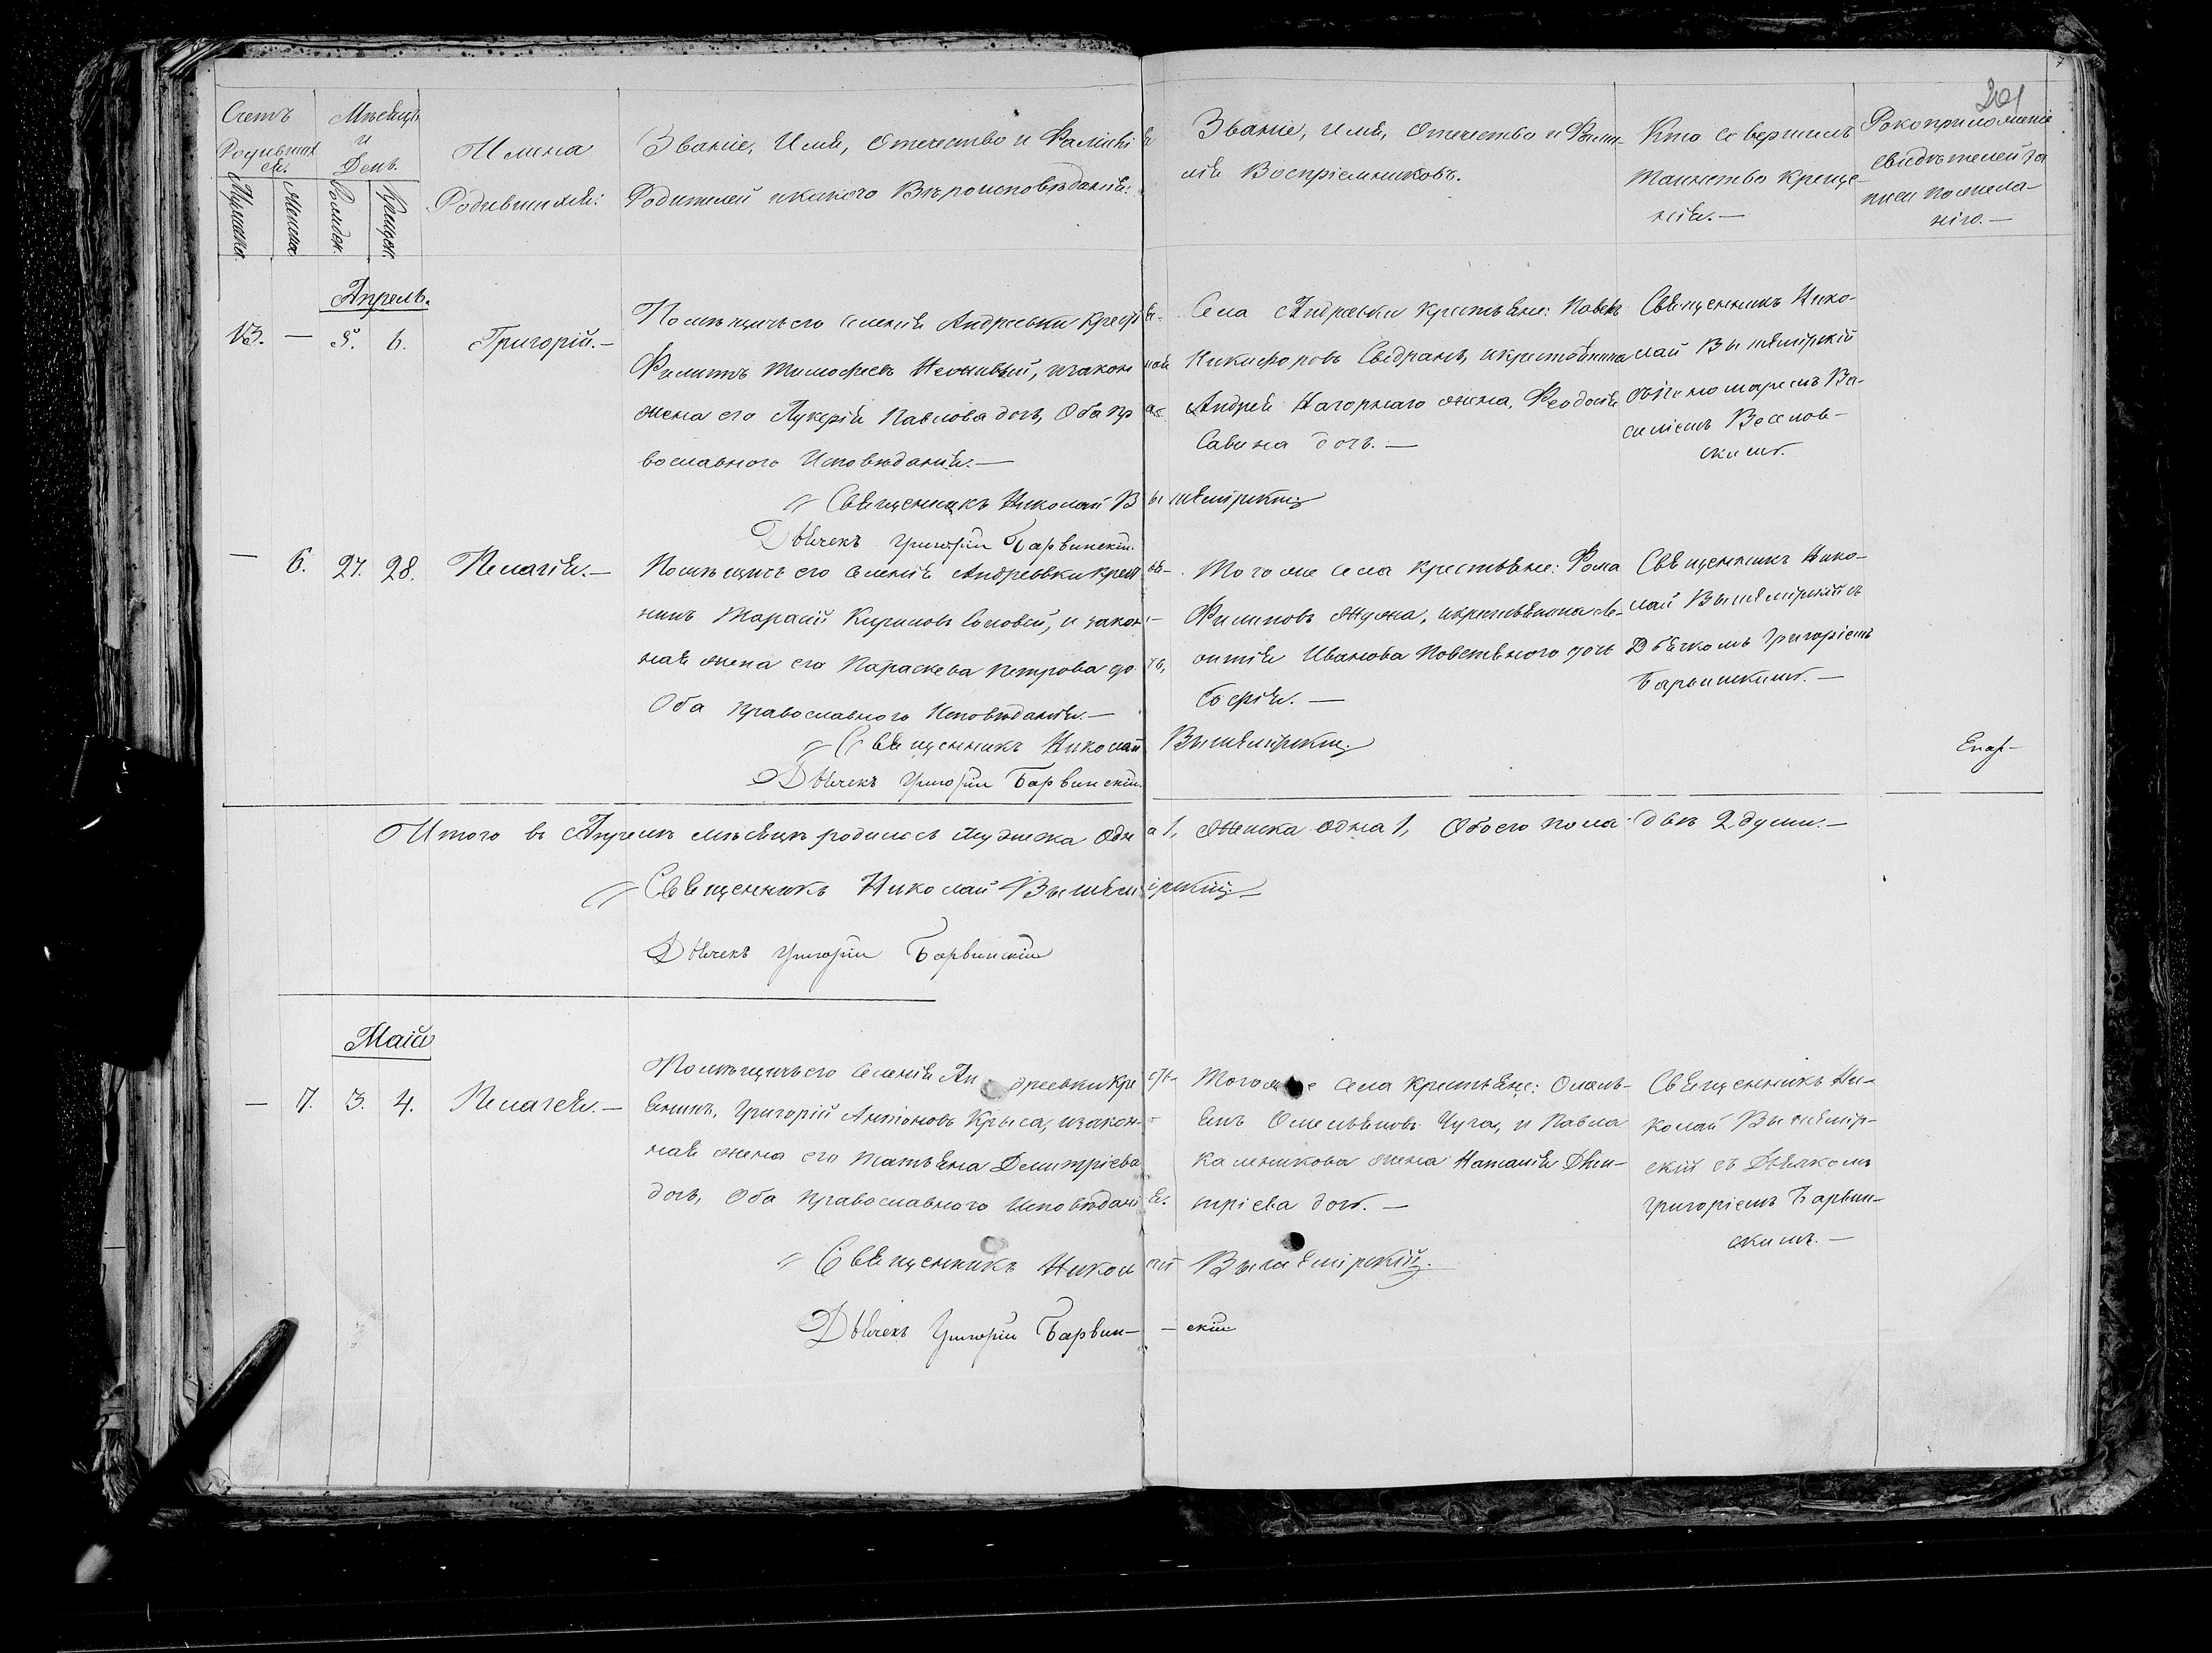 201
Счетъ
Родившихся.
Мужска.
Женска.
Мѣсяцъ
и
День.
Рожден.
Крещен.
Имена
Родившихся:
Званіе, Имя, Отечество и Фамилія
Родителей и какого Вѣроисповѣданія:
Званіе, имя, Отечество и Фами-
лія Воспріемниковъ.
Кто Совершилъ
Таинство Креще-
нія.—
Рокоприложеніе
свидѣтелей за
писи по жела-
нію.—
Апрель.
13. — 5. 6. Григорій.—
Помѣщичьего селенія Андреевки Крестья-
Филиппъ Тимофеевъ, изаконная
жена его Лукерія Павлова дочь, Оба пра-
вославного Исповѣданія.—
Села Андреевки Крестьяне: Павелъ
Никифоровъ, икрестьянина
Андрея Нагорнаго жена, Феодосія
Савина дочь.—
Священникъ Нико-
лай Вышемірскій
съ Пономаремъ Ва-
силіемъ Веселов-
скимъ.
Священникъ Николай Вышемірскій
Дьячекъ Григорій Барвинскій.
— 6. 27. 28. Пелагія.—
Помѣщичьего селенія Андреевки крестья-
нинъ Тарасій Кириловъ Соловей, и закон-
ная жена его Параскева Петрова дочь,
Оба православного Исповѣданія.—
Того же села Крестьяне: Фома
Филиповъ, икрестьянина Ле-
онтія Иванова дочь
Софія.—
Священникъ Нико-
лай Вышемірскій съ
Дьячкомъ Григоріемъ
Барвинскимъ.—
Священникъ Николай Вышемірскій
Дьячекъ Григорій Барвинскій.
Итого въ Апрелѣ мѣсяцѣ родилось мужеска одна 1, женска одна 1, Обоего пола двѣ 2 души.—
Священникъ Николай Вышемірскій
Дьячекъ Григорій Барвинскій
Маія
— 7. 3. 4. Пелагея.—
Помѣщичьего селенія Андреевки Кресть-
янинъ, Григорій Антоновъ Крыса, изакон-
ная жена его Татьяна Димитріева
дочь, Оба православного Исповѣданія.
Того же села крестьяне: Омель-
янъ Омельяновъ Чуга, и Павла
Каленикова жена Наталія Дми-
тріева дочь.—
Священникъ Ни-
колай Вышемір-
скій съ Дьячкомъ
Григоріемъ Барвин-
скимъ.—
Священникъ Николай Вышемірскій.
Дьячекъ Григорій Барвин-скій